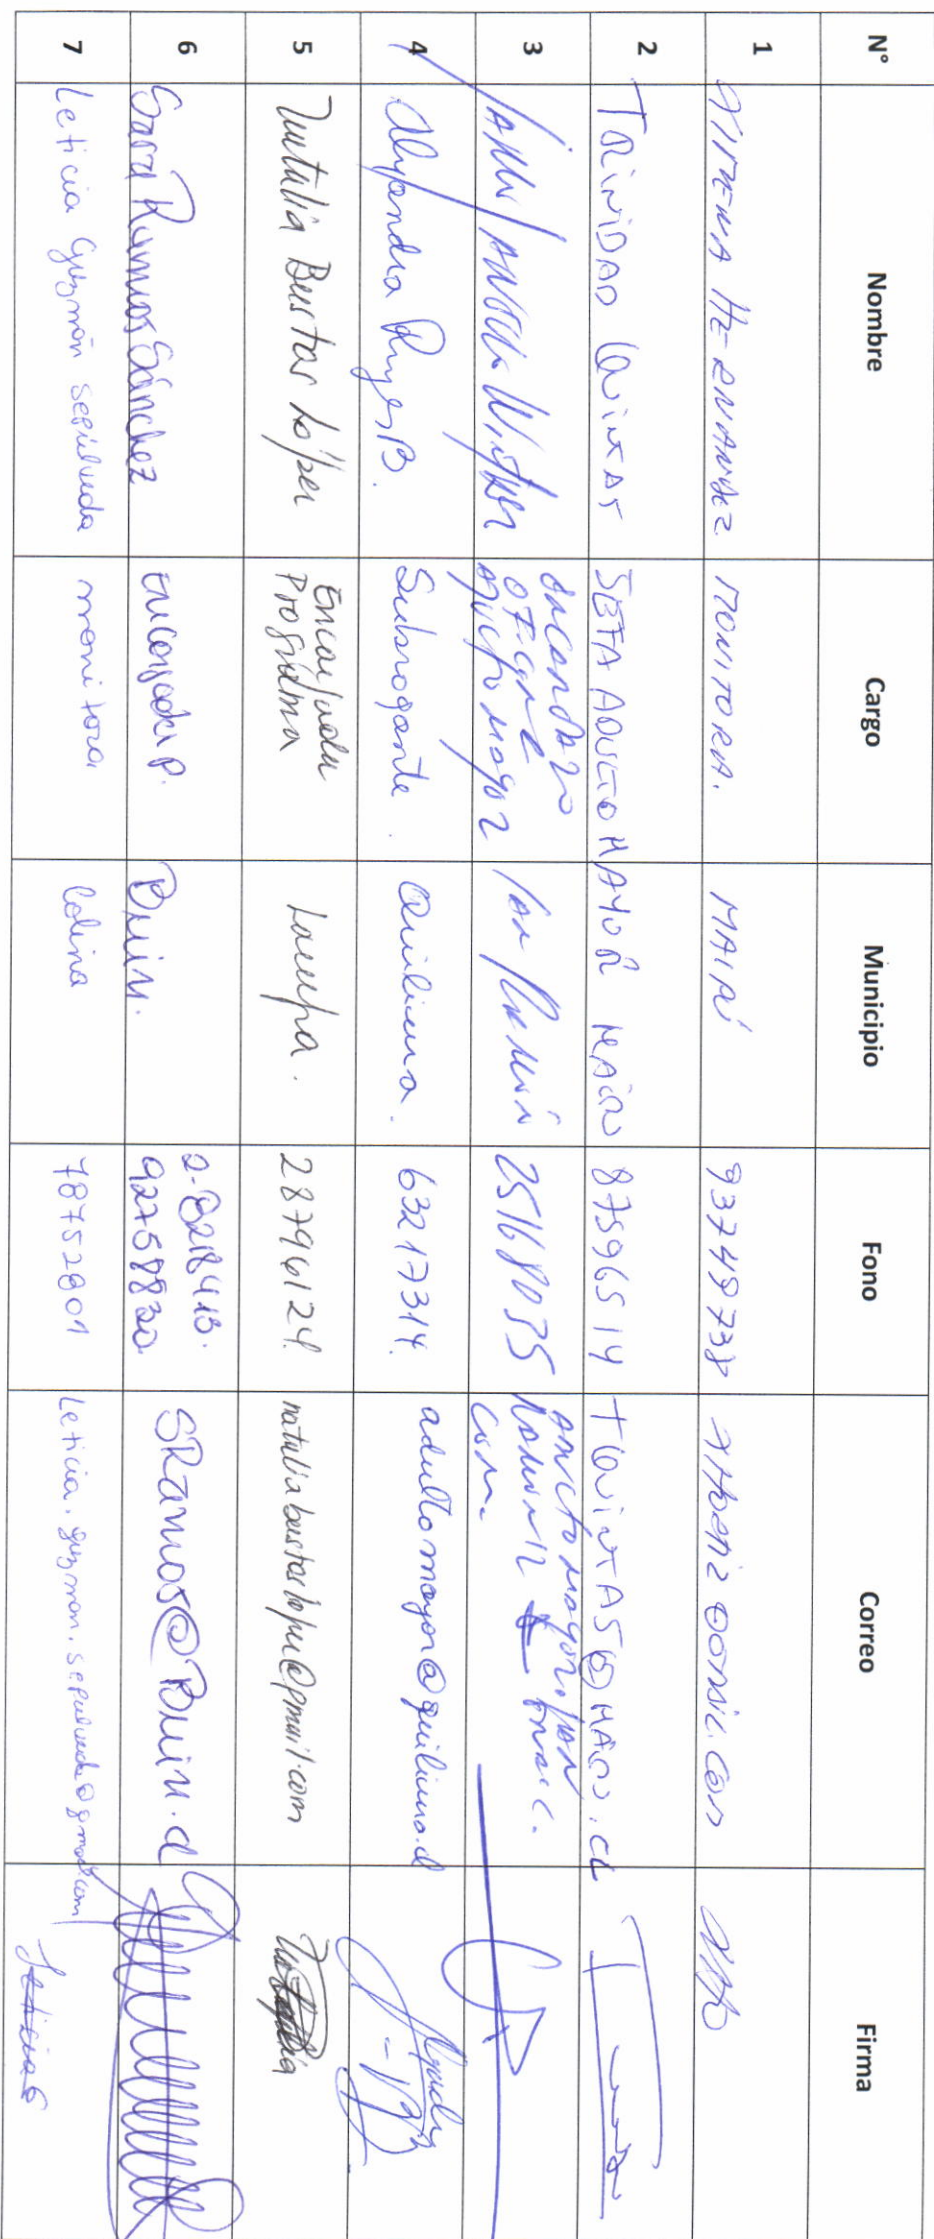 N° Nombre Cargo Municipio Fono Correo Firma
1 HERNANDEZ MONITORA. MAIPÚ 93749738
2 TRINIDAD QUINTAS JEFA ADULTO MAYOR MAIPÚ 87596514 TQUINTAS@MAIPU.CL
3 encargado
oficina
adulto mayor San Ramón 25168035 adultomayor
com.
4 Alejandra Reyes B. Subrogante. Quilicura. 63217314. adultomayor@quilicura.cl
5 Natalia Bustos López Encargada
Programa Lampa. 28796124. nataliabustoslopez@gmail.com Natalia
6 Sara Ramos Sánchez Encargada P. Buin. 2-8218413.
92758830 SRamos@Buin.cl
7 Leticia Guzmán Sepúlveda monitora Colina 78752801 Leticia.guzman.sepulveda@gmail.com Leticia G